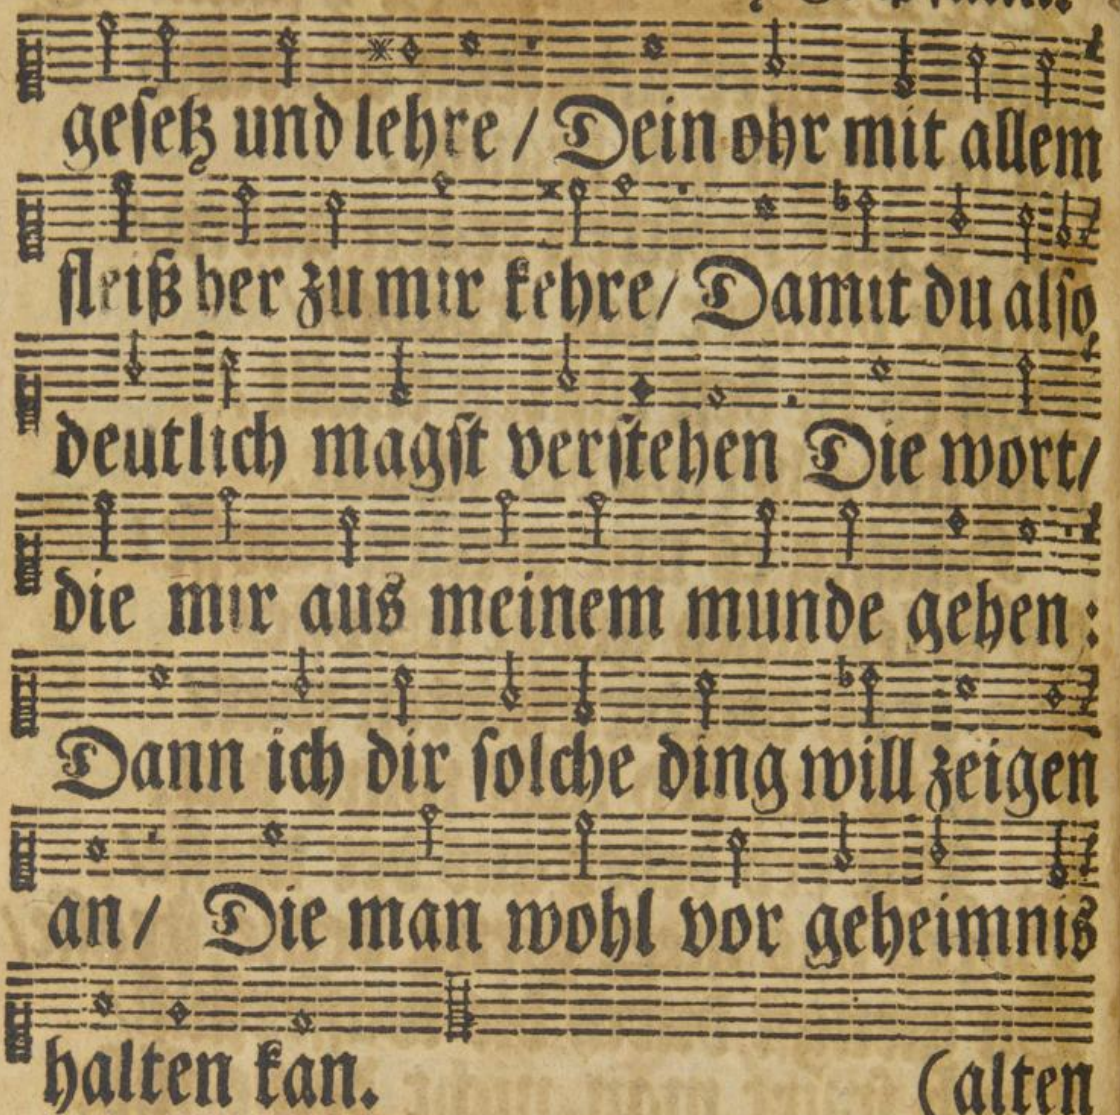 gesetz und lehre / Dein ohr mit allem
fleiß her zu mir kehre / Damit du also
deutlich magst verstehen Die wort /
die mir aus meinem munde gehen :
Dann ich dir solche ding will zeigen
an / Die man wohl vor geheimnis
halten kan. (alten